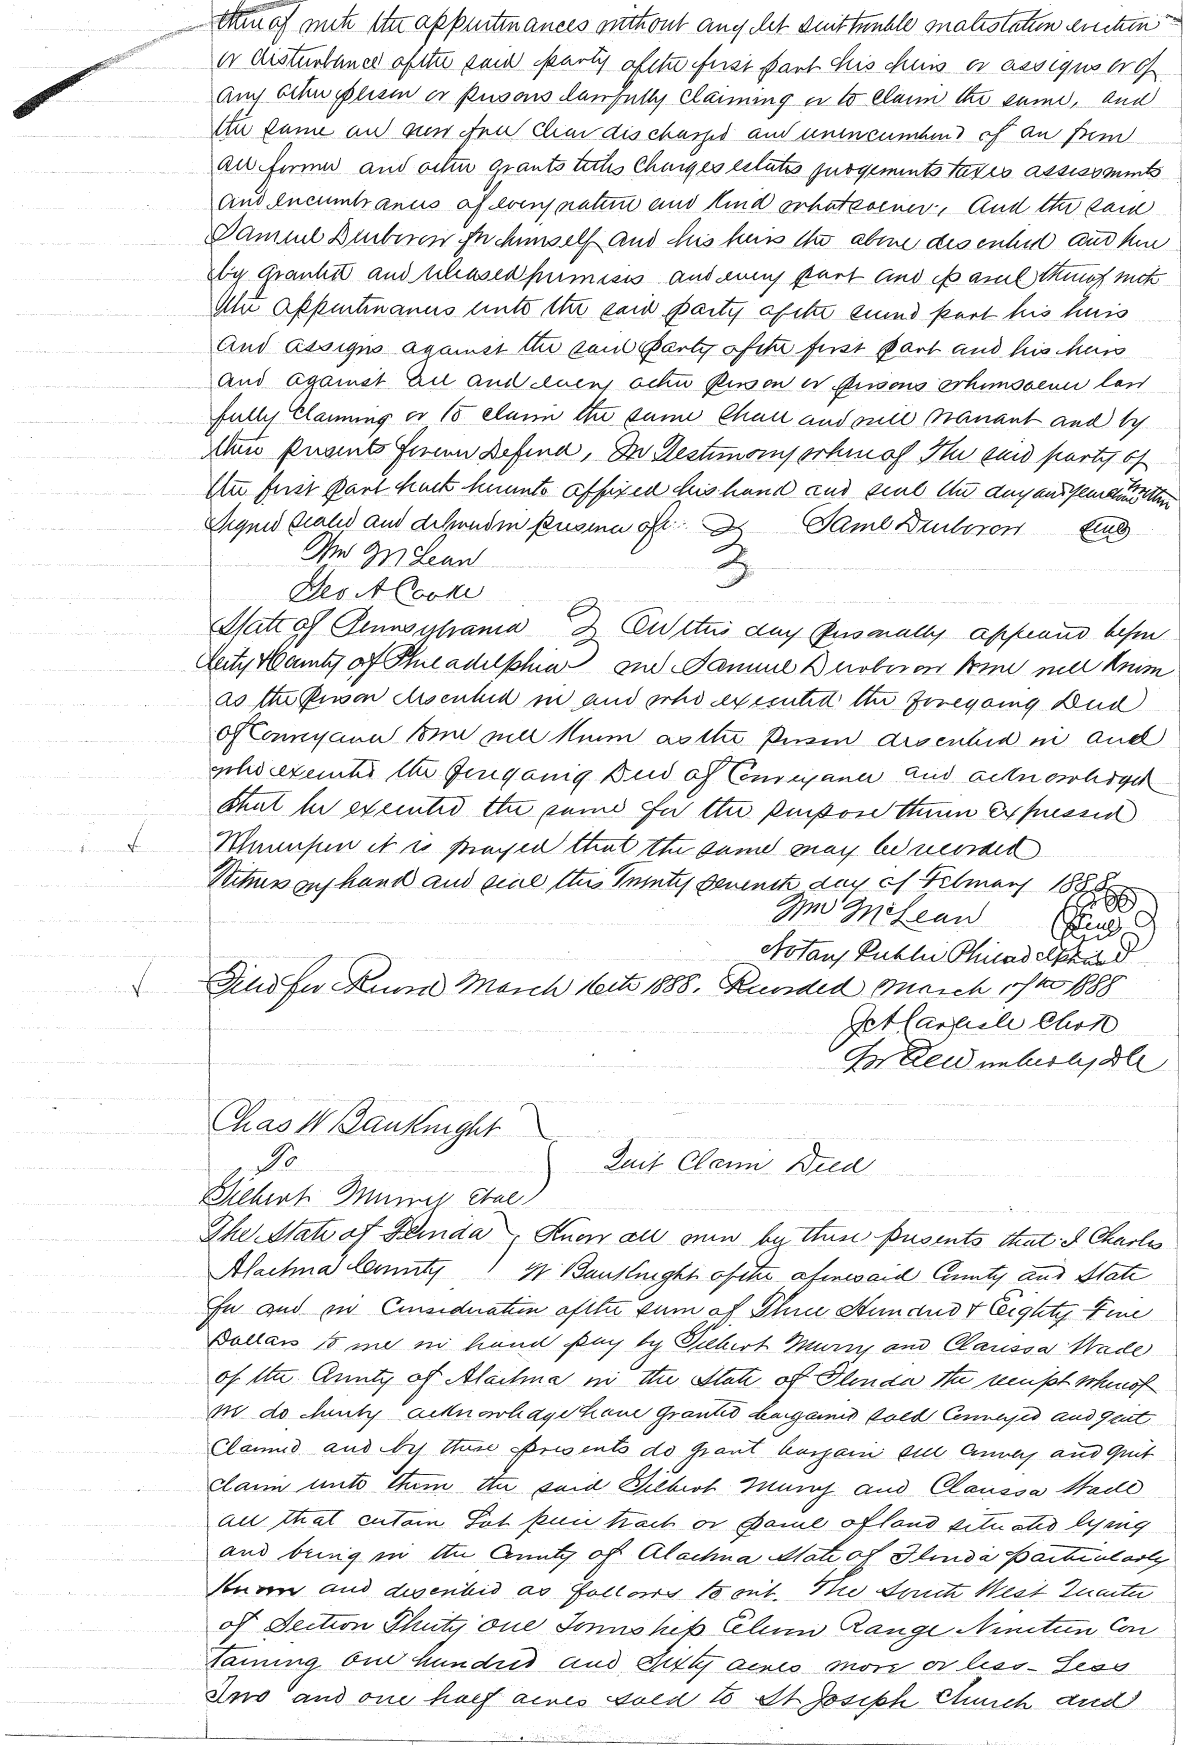 thereof with the appurtenances without any let suit trouble molestation eviction
or disturbance of the said party of the first part his heirs or assigns or of
any other person or persons lawfully claiming or to claim the same, and
the same are now free clear discharged and unencumbered of an from
all former and other grants titles charges estates judgements taxes assessments
and encumbrances of every nature and kind whatsoever, And the said
Samuel Denboron for himself and his heirs the above described and here
by granted and released premises and every part and parcel thereof with
the appurtenances unto the said party of the second part his heirs
and assigns against the said party of the first part and his heirs
and against all and every other person or persons whomsoever law
fully claiming or to claim the same shall and will warrant and by
these presents forever Defend, In Testimony whereof The said party of
the first part hath hereunto affixed his hand and seal the day and year above written
Signed sealed and delivered in presence of Saml Denboron Seal
Wm McLean
Geo A Cooke
State of Pennsylvania On this day personally appeared before
City & County of Philadelphia me Samuel Denboron to me well known
as the person described in and who executed the foregoing Deed
of Conveyance to me well known as the person described in and
who executed the foregoing Deed of Conveyance and acknowledged
that he executed the same for the purpose therein expressed
Whereupon it is prayed that the same may be recorded
Witness my hand and seal this Twenty Seventh day of February 1888
Wm McLean Seal
Notary Public Philadelphia
Filed for Record March 16th 1888. Recorded March 17th 1888
Clerk
Chas W Bauknight
To Quit Claim Deed
Gilbert Murry et al
The State of Florida Know all men by these presents that I Charles
Alachua County W Bauknight of the aforesaid County and State
for and in Consideration of the sum of Three Hundred & Eighty Five
Dollars to me in hand pay by Gilbert Murry and Clarissa Wade
of the County of Alachua in the State of Florida the receipt whereof
we do hereby acknowledge have granted bargained sold Conveyed and quit
Claimed and by these presents do grant bargain sell convey and quit
claim unto them the said Gilbert Murry and Clarissa Wade
all that certain Lot piece tract or parcel of land situated lying
and being in the County of Alachua State of Florida particularly
known and described as follows to wit. The South West Quarter
of Section Thirty one Township Eleven Range Nineteen Con
taining One hundred and Sixty acres more or less - Less
Two and one half acres sold to St Joseph Church and